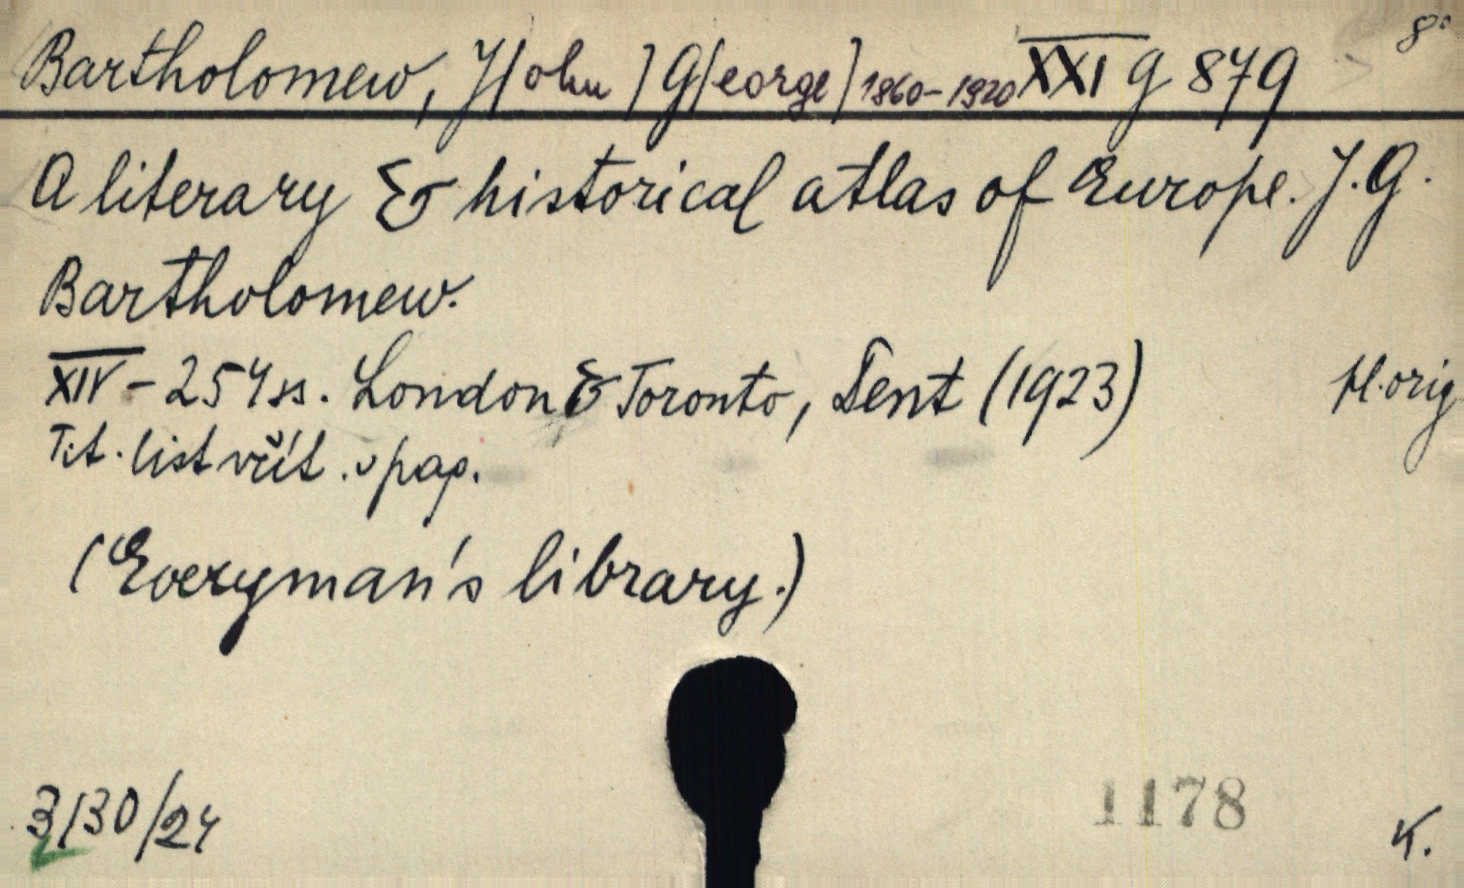 Bartholomew, J[ohn] G[eorge] 1860-1920 XXI G 879 8°
A literary & historical atlas of Europe. J. G.
Bartholomew.
XIV - 254 ss. London & Toronto, Dent (1923)
Tit. list vřít. v pap.
(Everyman's library.)
3/30/24
1178
K.